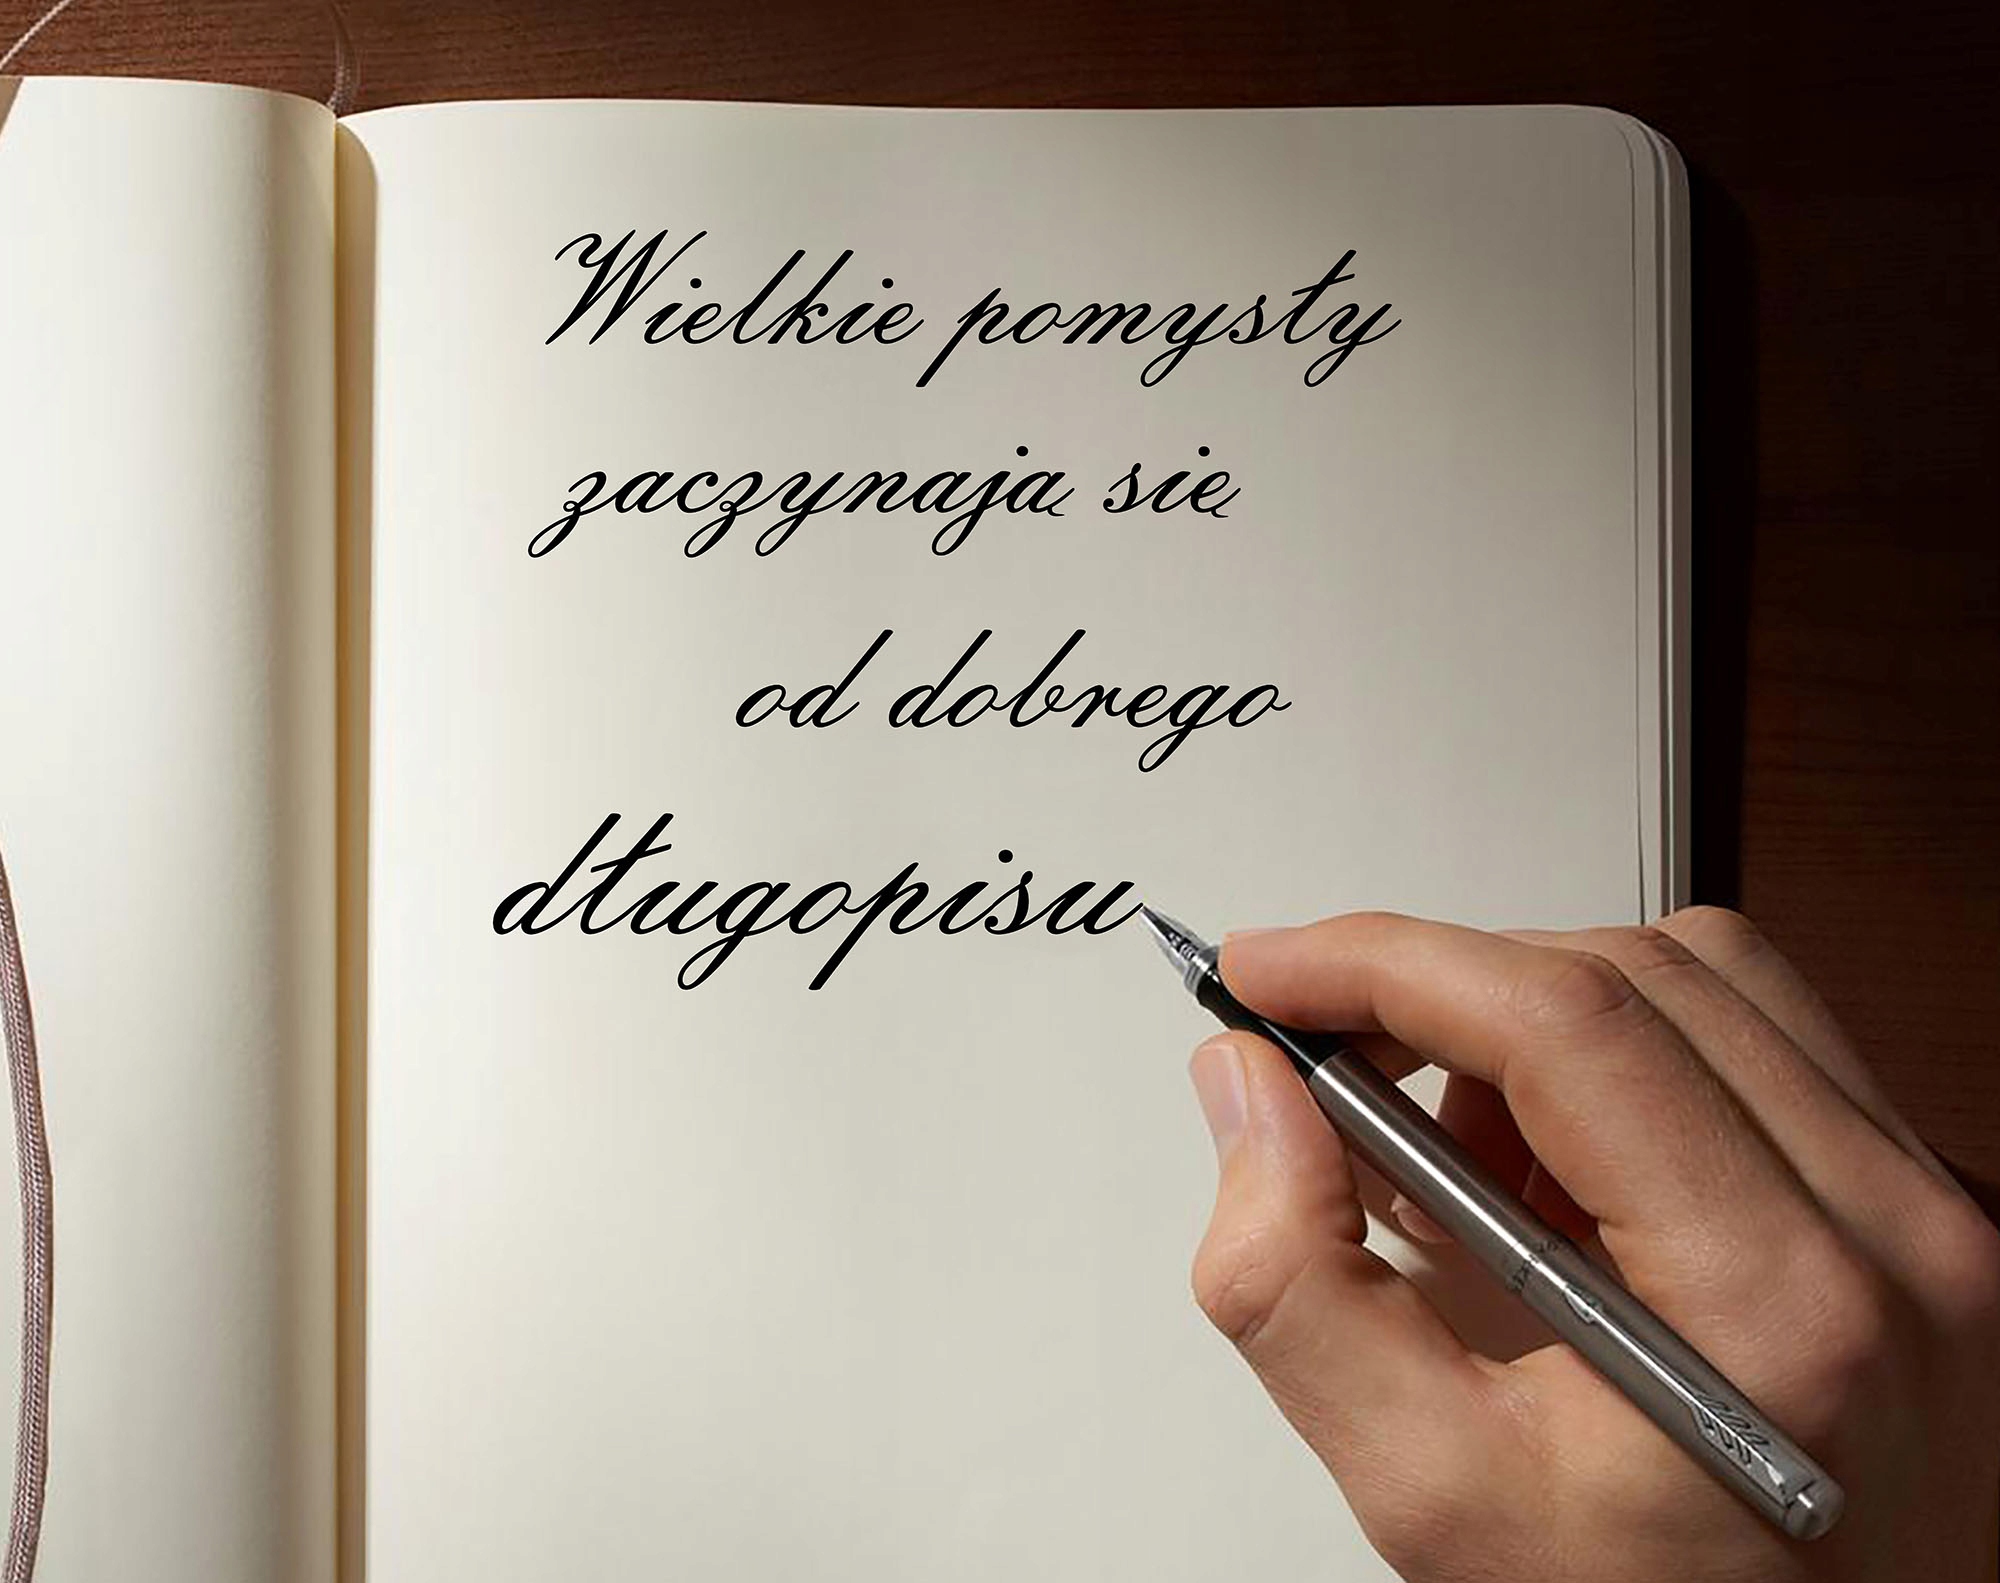 Wielkie pomysły
zaczynają się
od dobrego
długopisu